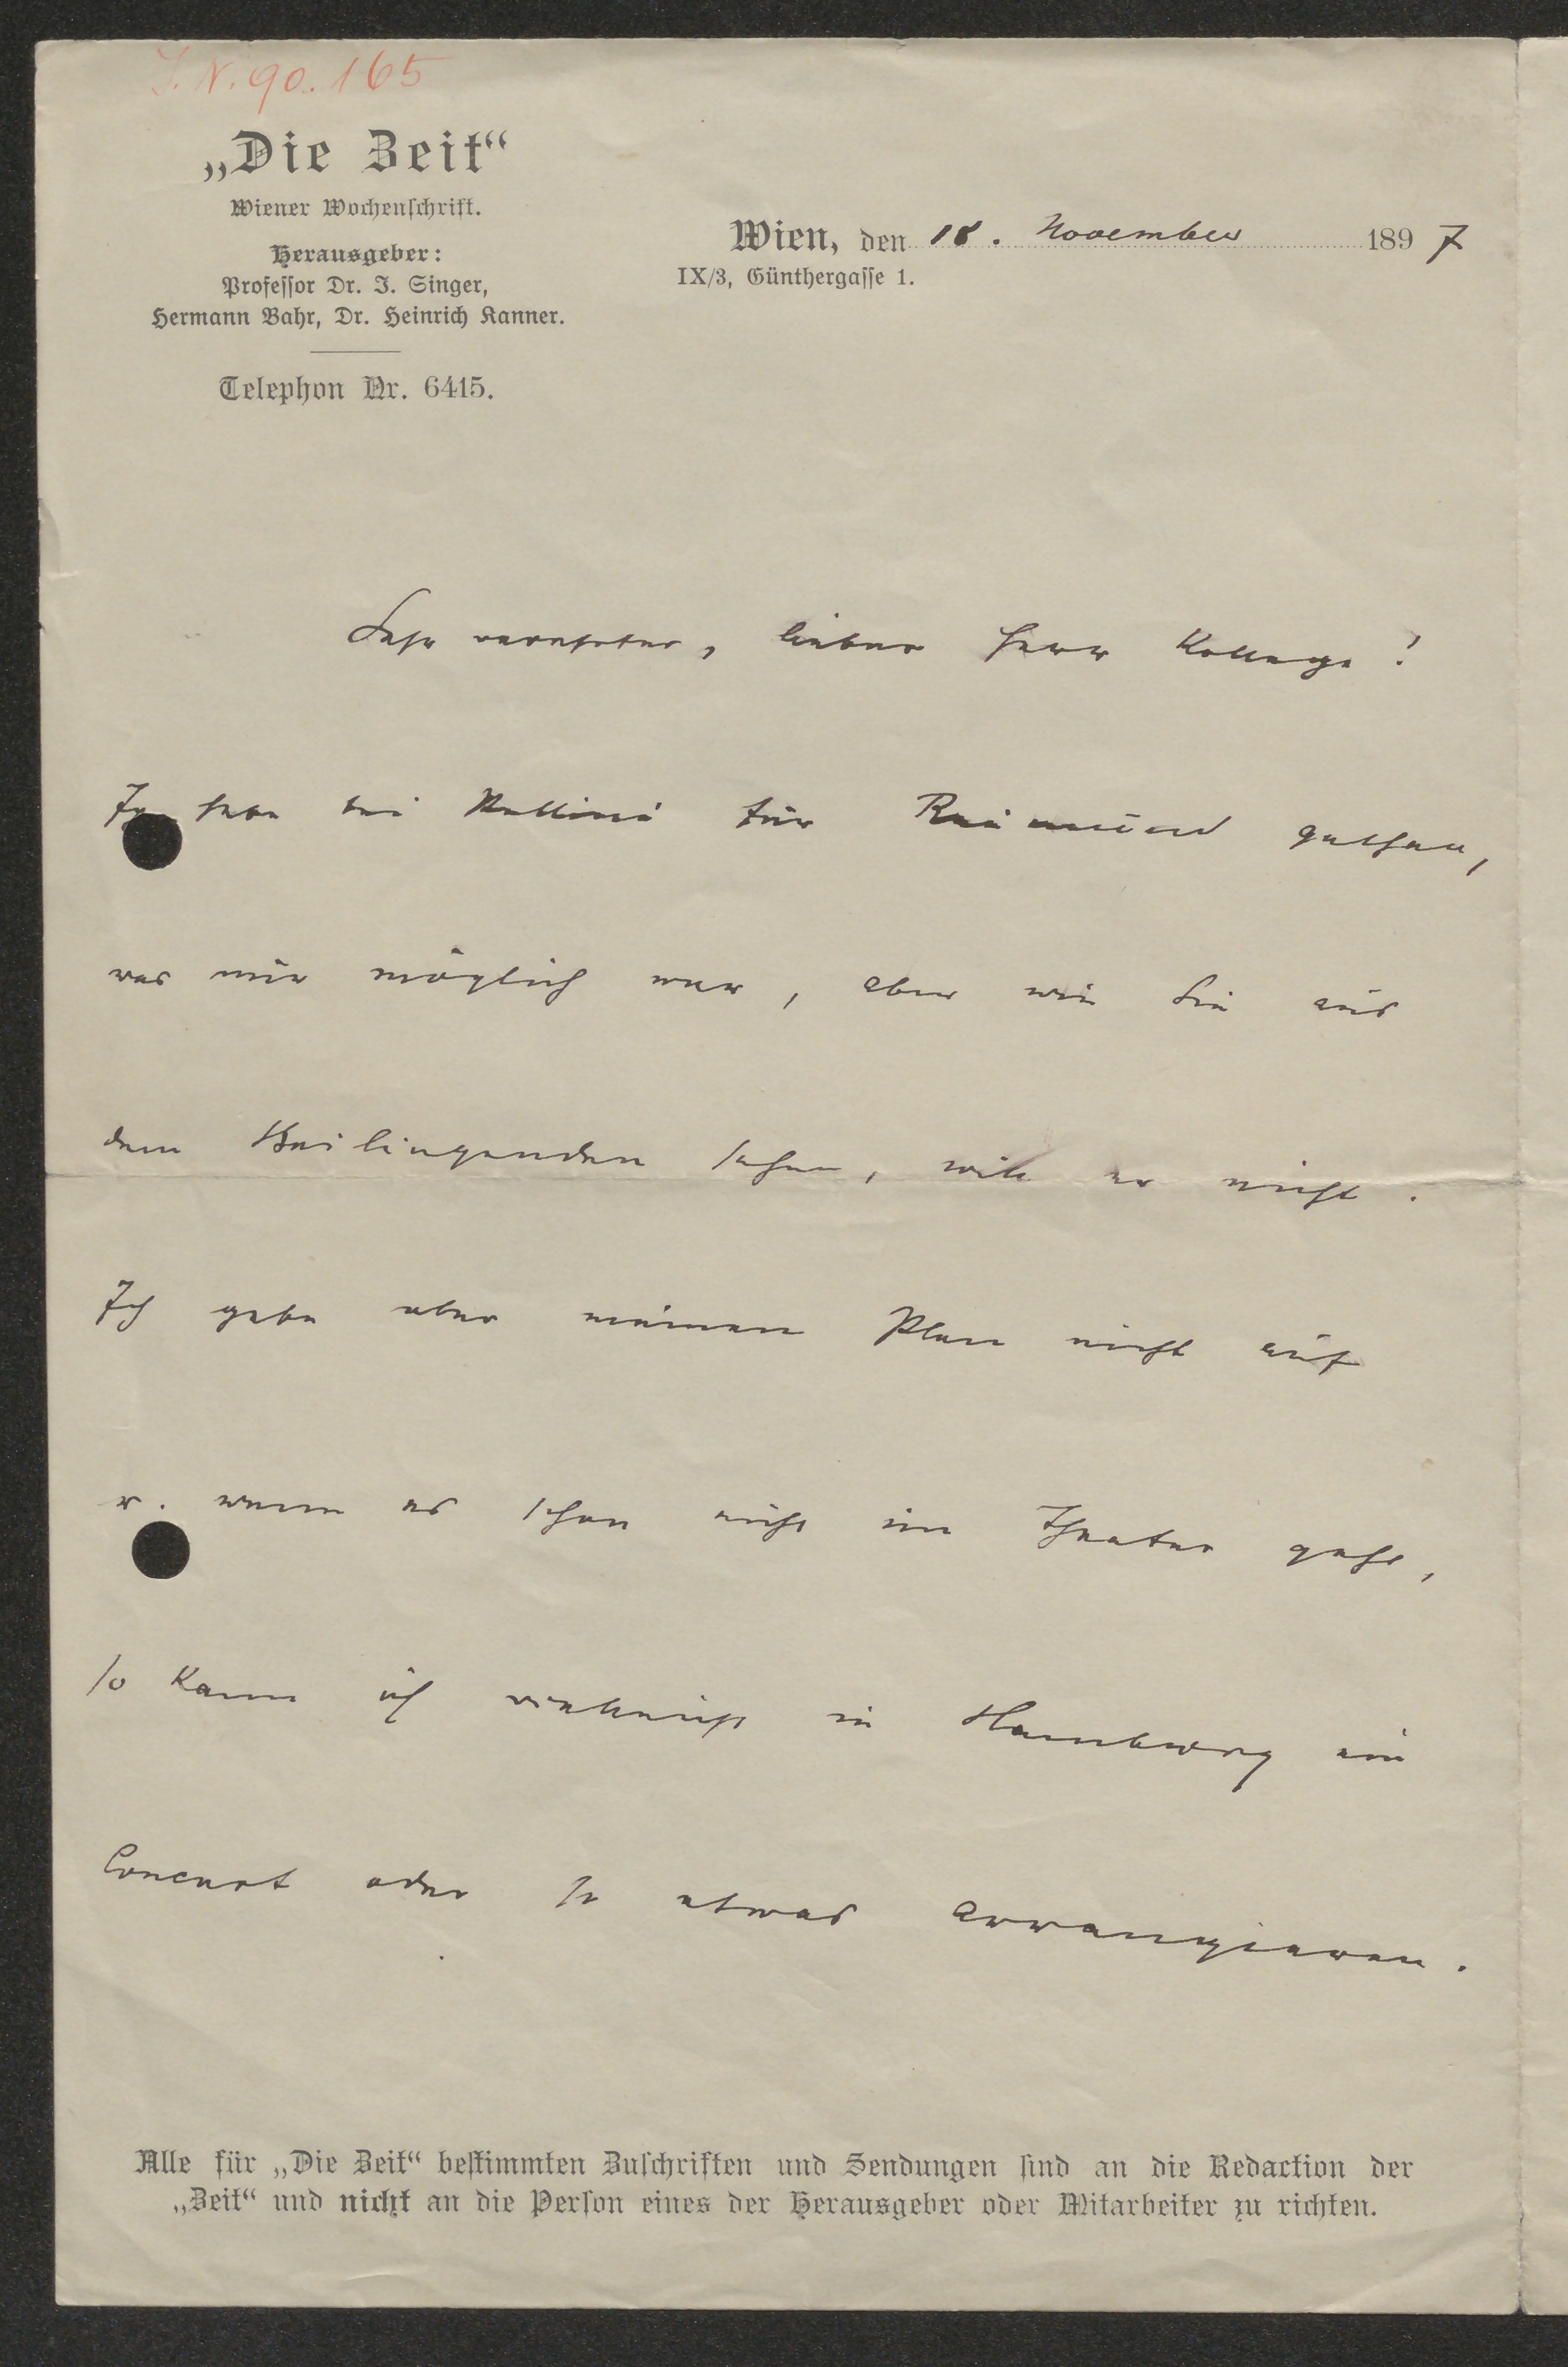 J.N. 90.165
„Die Zeit“
Wiener Wochenſchrift.
Herausgeber:
Profeſſor Dr. J. Singer,
Hermann Bahr, Dr. Heinrich Kanner.
Telephon Nr. 6415.
Wien, den 18. November 1897
IX/3, Günthergaſſe 1.
Sehr verehrter, lieber Herr Kollege!
Ich habe bei Pollini für Raimund gethan,
was mir möglich war, aber wie Sie aus
dem Beiliegenden sehen, will er nicht.
Ich gebe aber meinen Plan nicht auf
u. wenn es schon nicht im Theater geht,
so kann ich vielleicht in Hamburg ein
Concert oder so etwas arrangieren.
Alle für „Die Zeit“ beſtimmten Zuſchriften und Sendungen ſind an die Redaction der
„Zeit“ und nicht an die Perſon eines der Herausgeber oder Mitarbeiter zu richten.